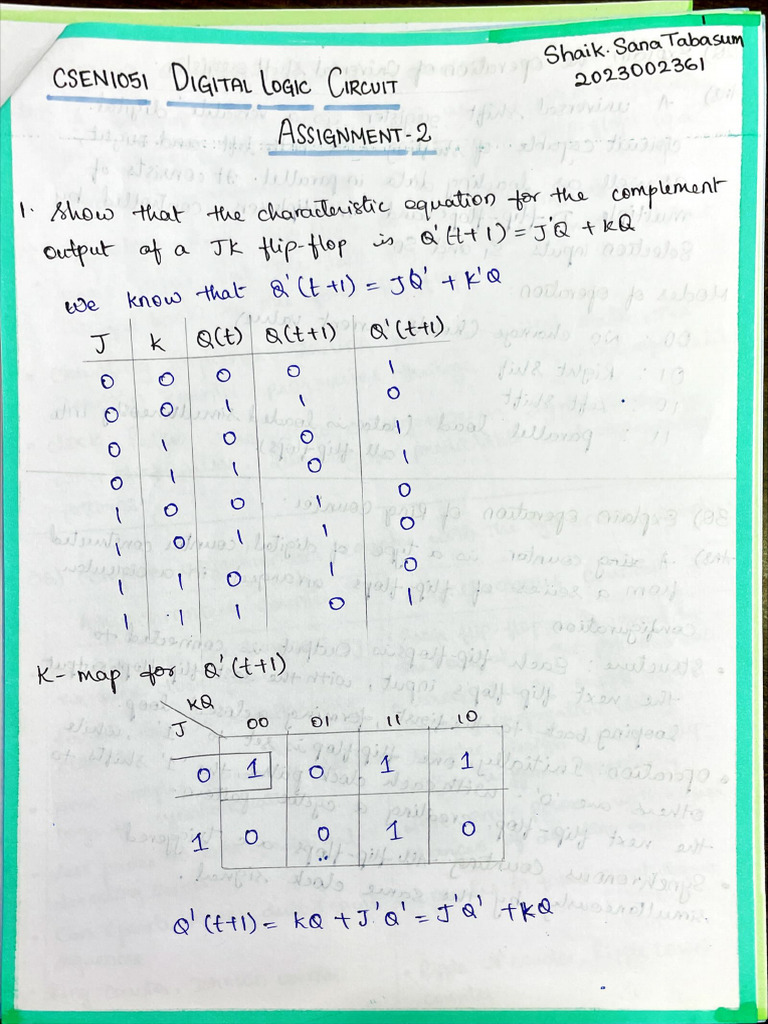 Shaik. Sana Tabasum
2023002361
CSEN1051 DIGITAL LOGIC CIRCUIT
ASSIGNMENT-2
1. Show that the characteristic equation for the complement
output of a JK flip-flop is Q'(t+1) = JQ + KQ
We know that Q'(t+1) = JQ' + K'Q
J K Q(t) Q(t+1) Q'(t+1)
0 0 0 0 1
0 0 1 1 0
0 1 0 0 1
0 1 1 0 1
1 0 0 1 0
1 0 1 1 0
1 1 0 1 0
1 1 1 0 1
K-map for Q'(t+1)
KQ
J 00 01 11 10
0 1 0 1 1
1 0 0 1 0
Q'(t+1) = KQ + J'Q' = J'Q' + KQ